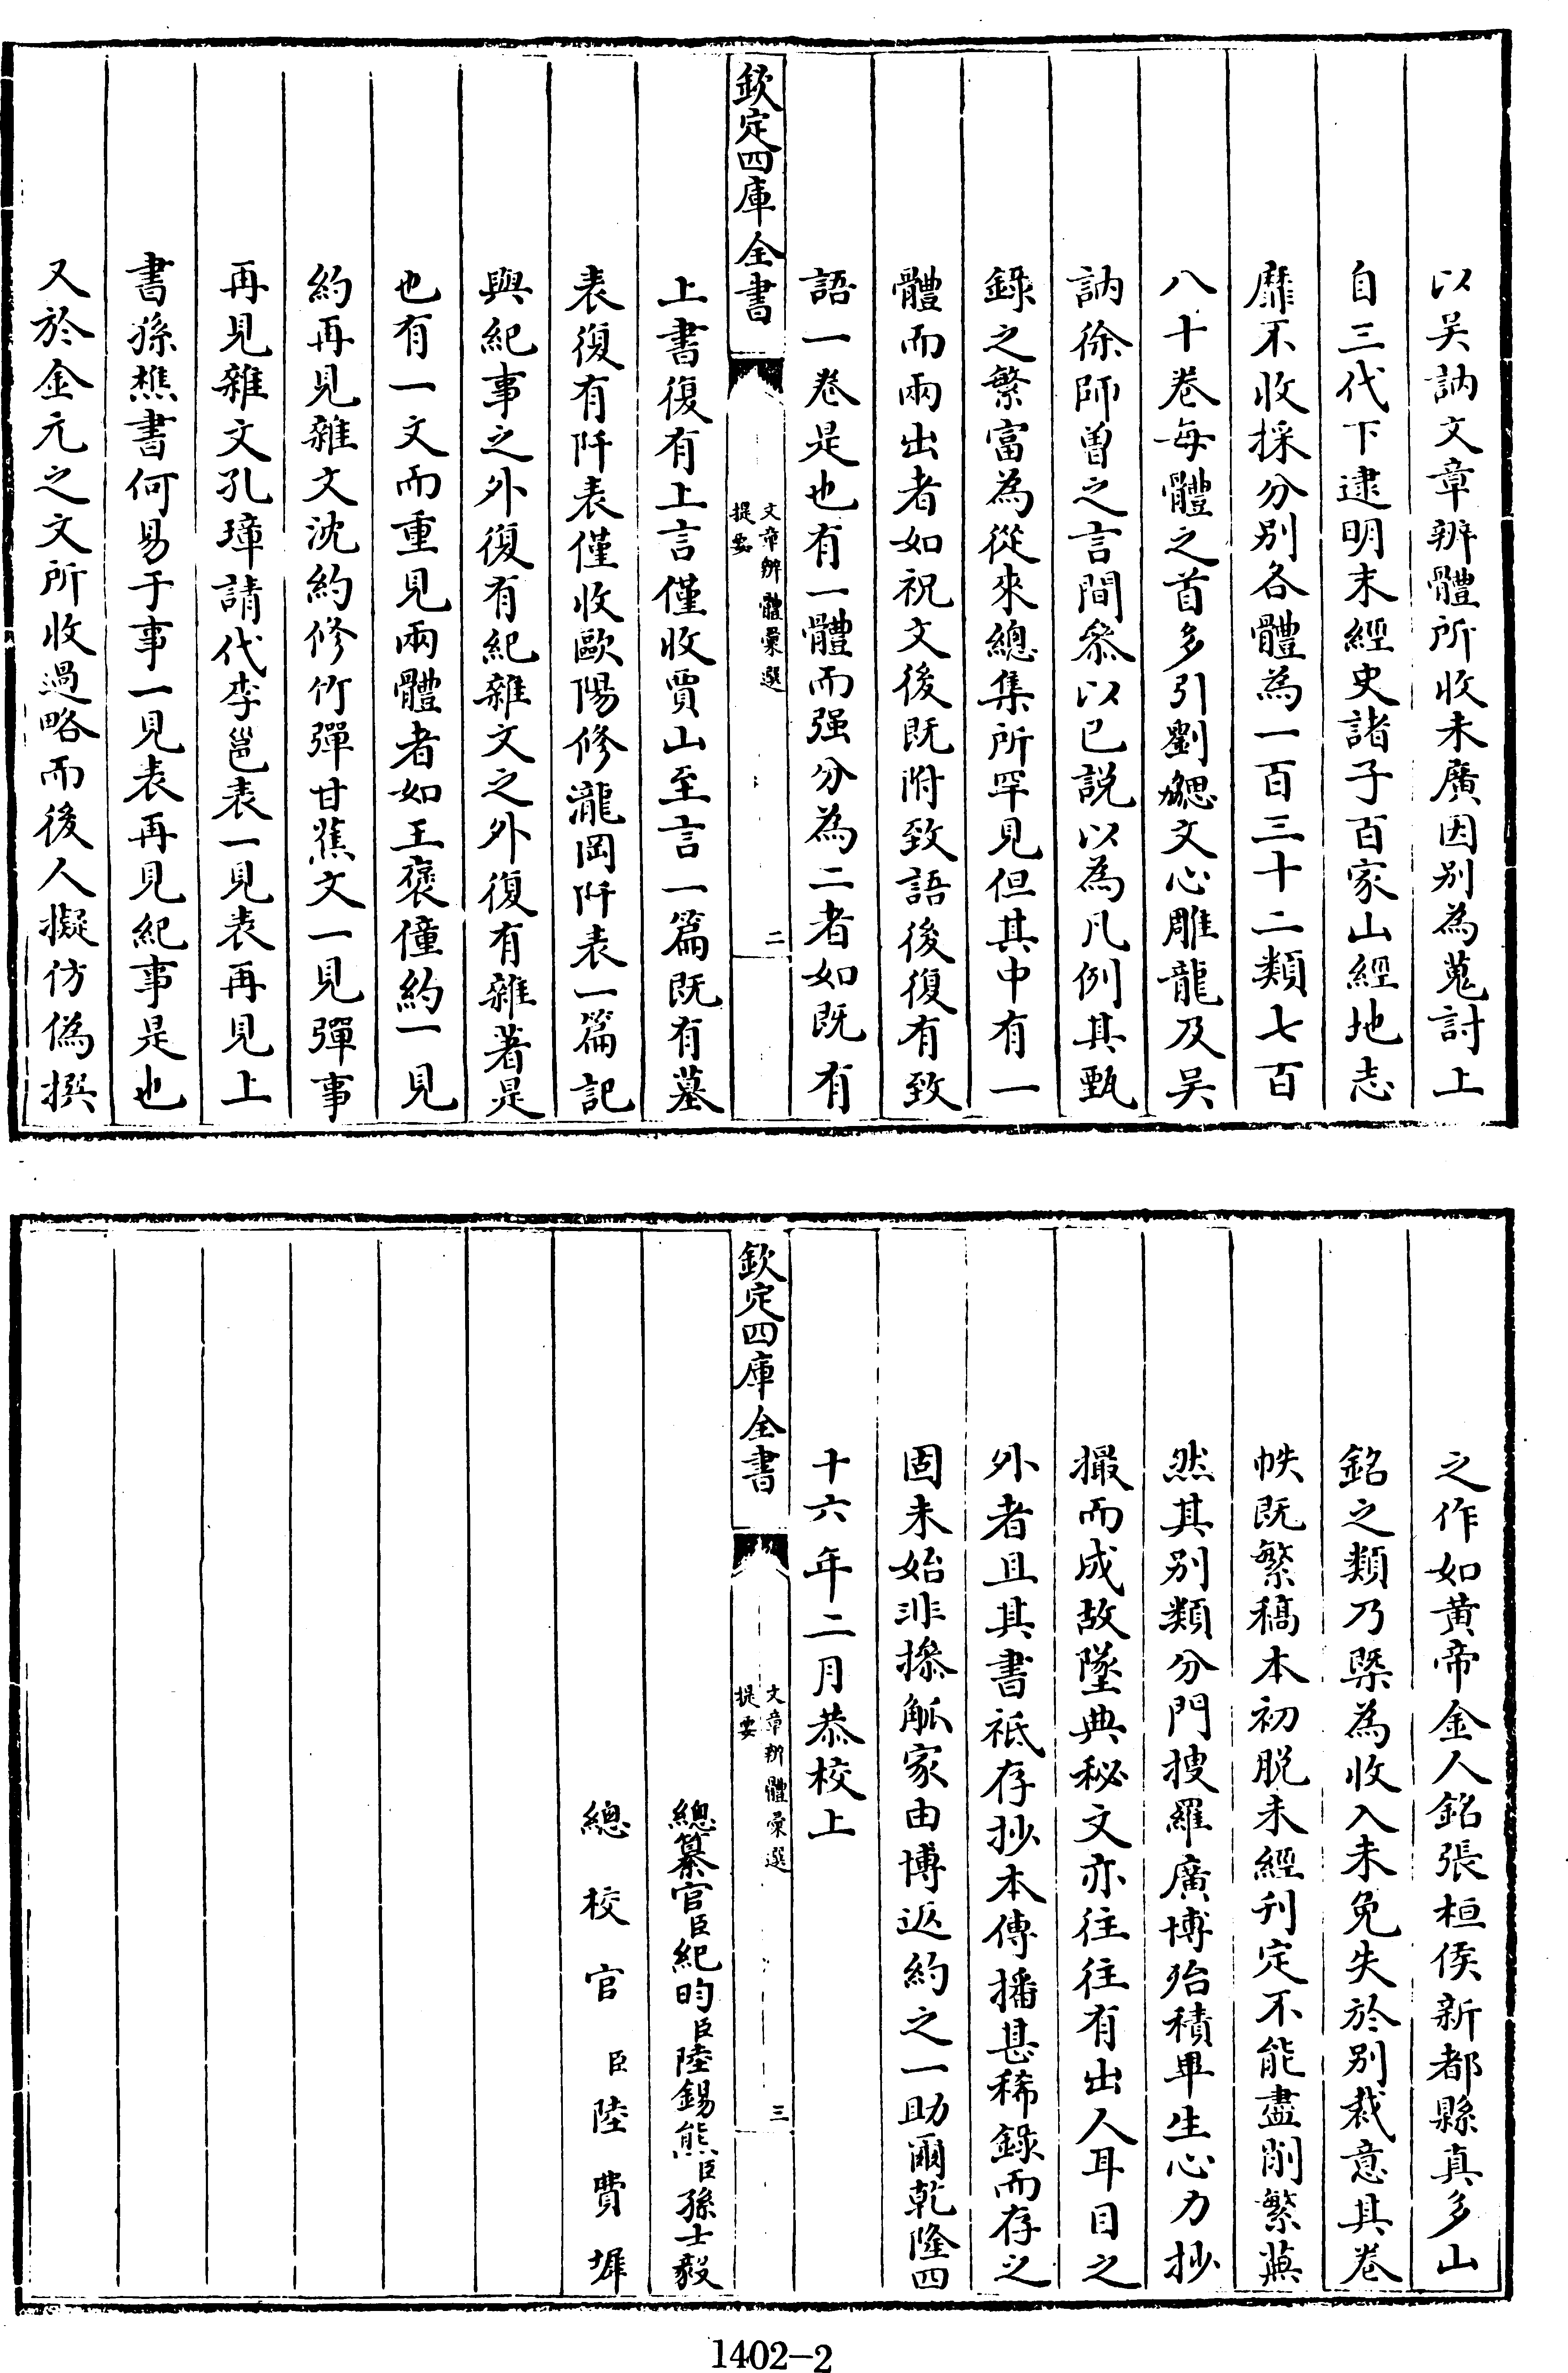 以吴訥文章辨體所收未廣因别為蒐討上
自三代下逮明末經史諸子百家山經地志
靡不收採分别各體為一百三十二類七百
八十卷每體之首多引劉勰文心雕龍及吴
訥徐師曽之言間叅以已説以為凡例其甄
錄之繁富為從來總集所罕見但其中有一
體而兩出者如祝文後既附致語後復有致
語一卷是也有一體而强分為二者如既有
欽定四庫全書
文章辨體彚選
提要
二
上書復有上言僅收賈山至言一篇既有墓
表復有阡表僅收歐陽修瀧岡阡表一篇記
與紀事之外復有紀雜文之外復有雜著是
也有一文而重見兩體者如王褒僮約一見
約再見雜文沈約修竹彈甘蕉文一見彈事
再見雜文孔璋請代李邕表一見表再見上
書孫樵書何易于事一見表再見紀事是也
又於金元之文所收過略而後人擬仿偽撰
之作如黄帝金人銘張桓侯新都縣真多山
銘之類乃槩為收入未免失於别裁意其卷
帙既繁稿本初脱未經刊定不能盡削繁蕪
然其别類分門搜羅廣博殆積畢生心力抄
撮而成故墜典秘文亦往往有出人耳目之
外者且其書祗存抄本傳播甚稀錄而存之
固未始非摻觚家由博返約之一助爾乾隆四
十六年二月恭校上
欽定四庫全書
文章辨體彚選
提要
三
總纂官臣紀昀臣陸錫熊臣孫士毅
總校官臣陸費墀
1402-2